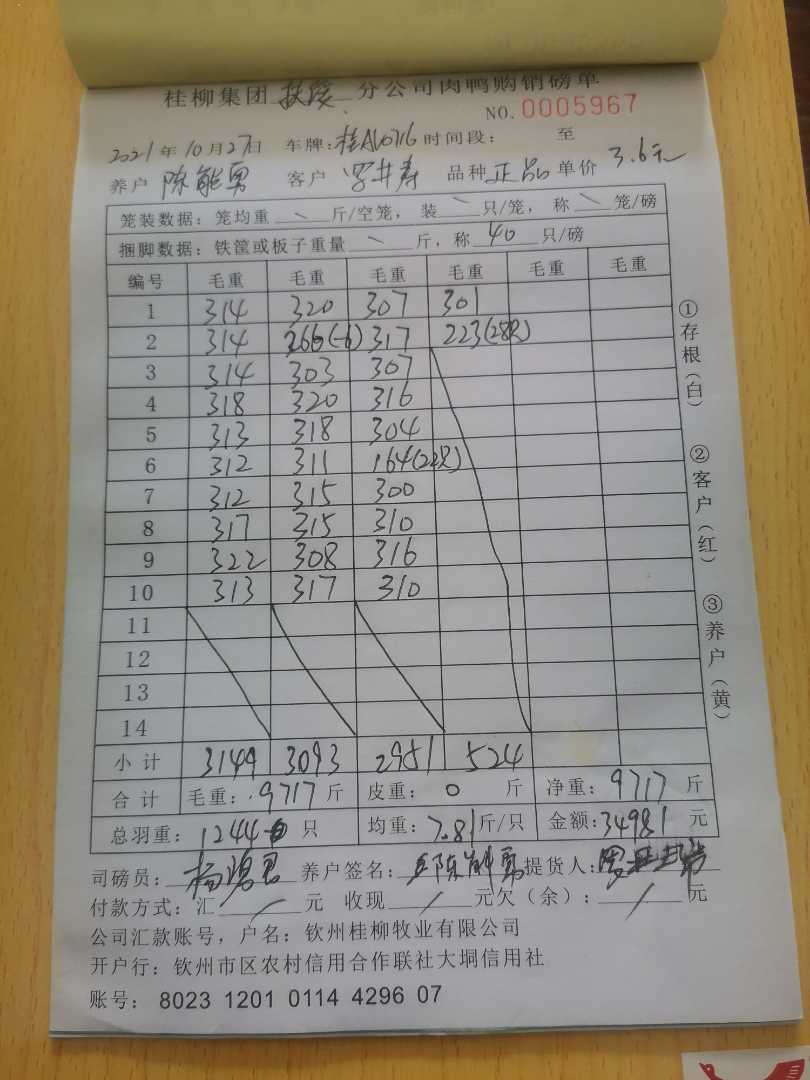 桂柳集团 扶绥 分公司肉鸭购销磅单
NO.0005967
2021年10月27日 车牌:桂AV0716 时间段: 至
养户 陈能勇 客户 罗井寿 品种 正品 单价 3.6元
笼装数据: 笼均重 \ 斤/空笼, 装 \ 只/笼, 称 \ 笼/磅
捆脚数据: 铁筐或板子重量 \ 斤, 称 40 只/磅
编号 毛重 毛重 毛重 毛重 毛重 毛重
1 314 320 307 301
2 314 266(-6) 317 223(28只)
3 314 303 307
4 318 320 316
5 313 318 304
6 312 311 164(22只)
7 312 315 300
8 317 315 310
9 322 308 316
10 313 317 310
11
12
13
14
小计 3149 3093 2951 524
合计 毛重: 9717 斤 皮重: 0 斤 净重: 9717 斤
总羽重: 1244 只 均重: 7.81 斤/只 金额: 34981 元
司磅员: 养户签名: 陈能勇 提货人:
付款方式: 汇 / 元 收现 / 元欠(余): / 元
公司汇款账号, 户名: 钦州桂柳牧业有限公司
开户行: 钦州市区农村信用合作联社大垌信用社
账号: 8023 1201 0114 4296 07
①存根(白)
②客户(红)
③养户(黄)